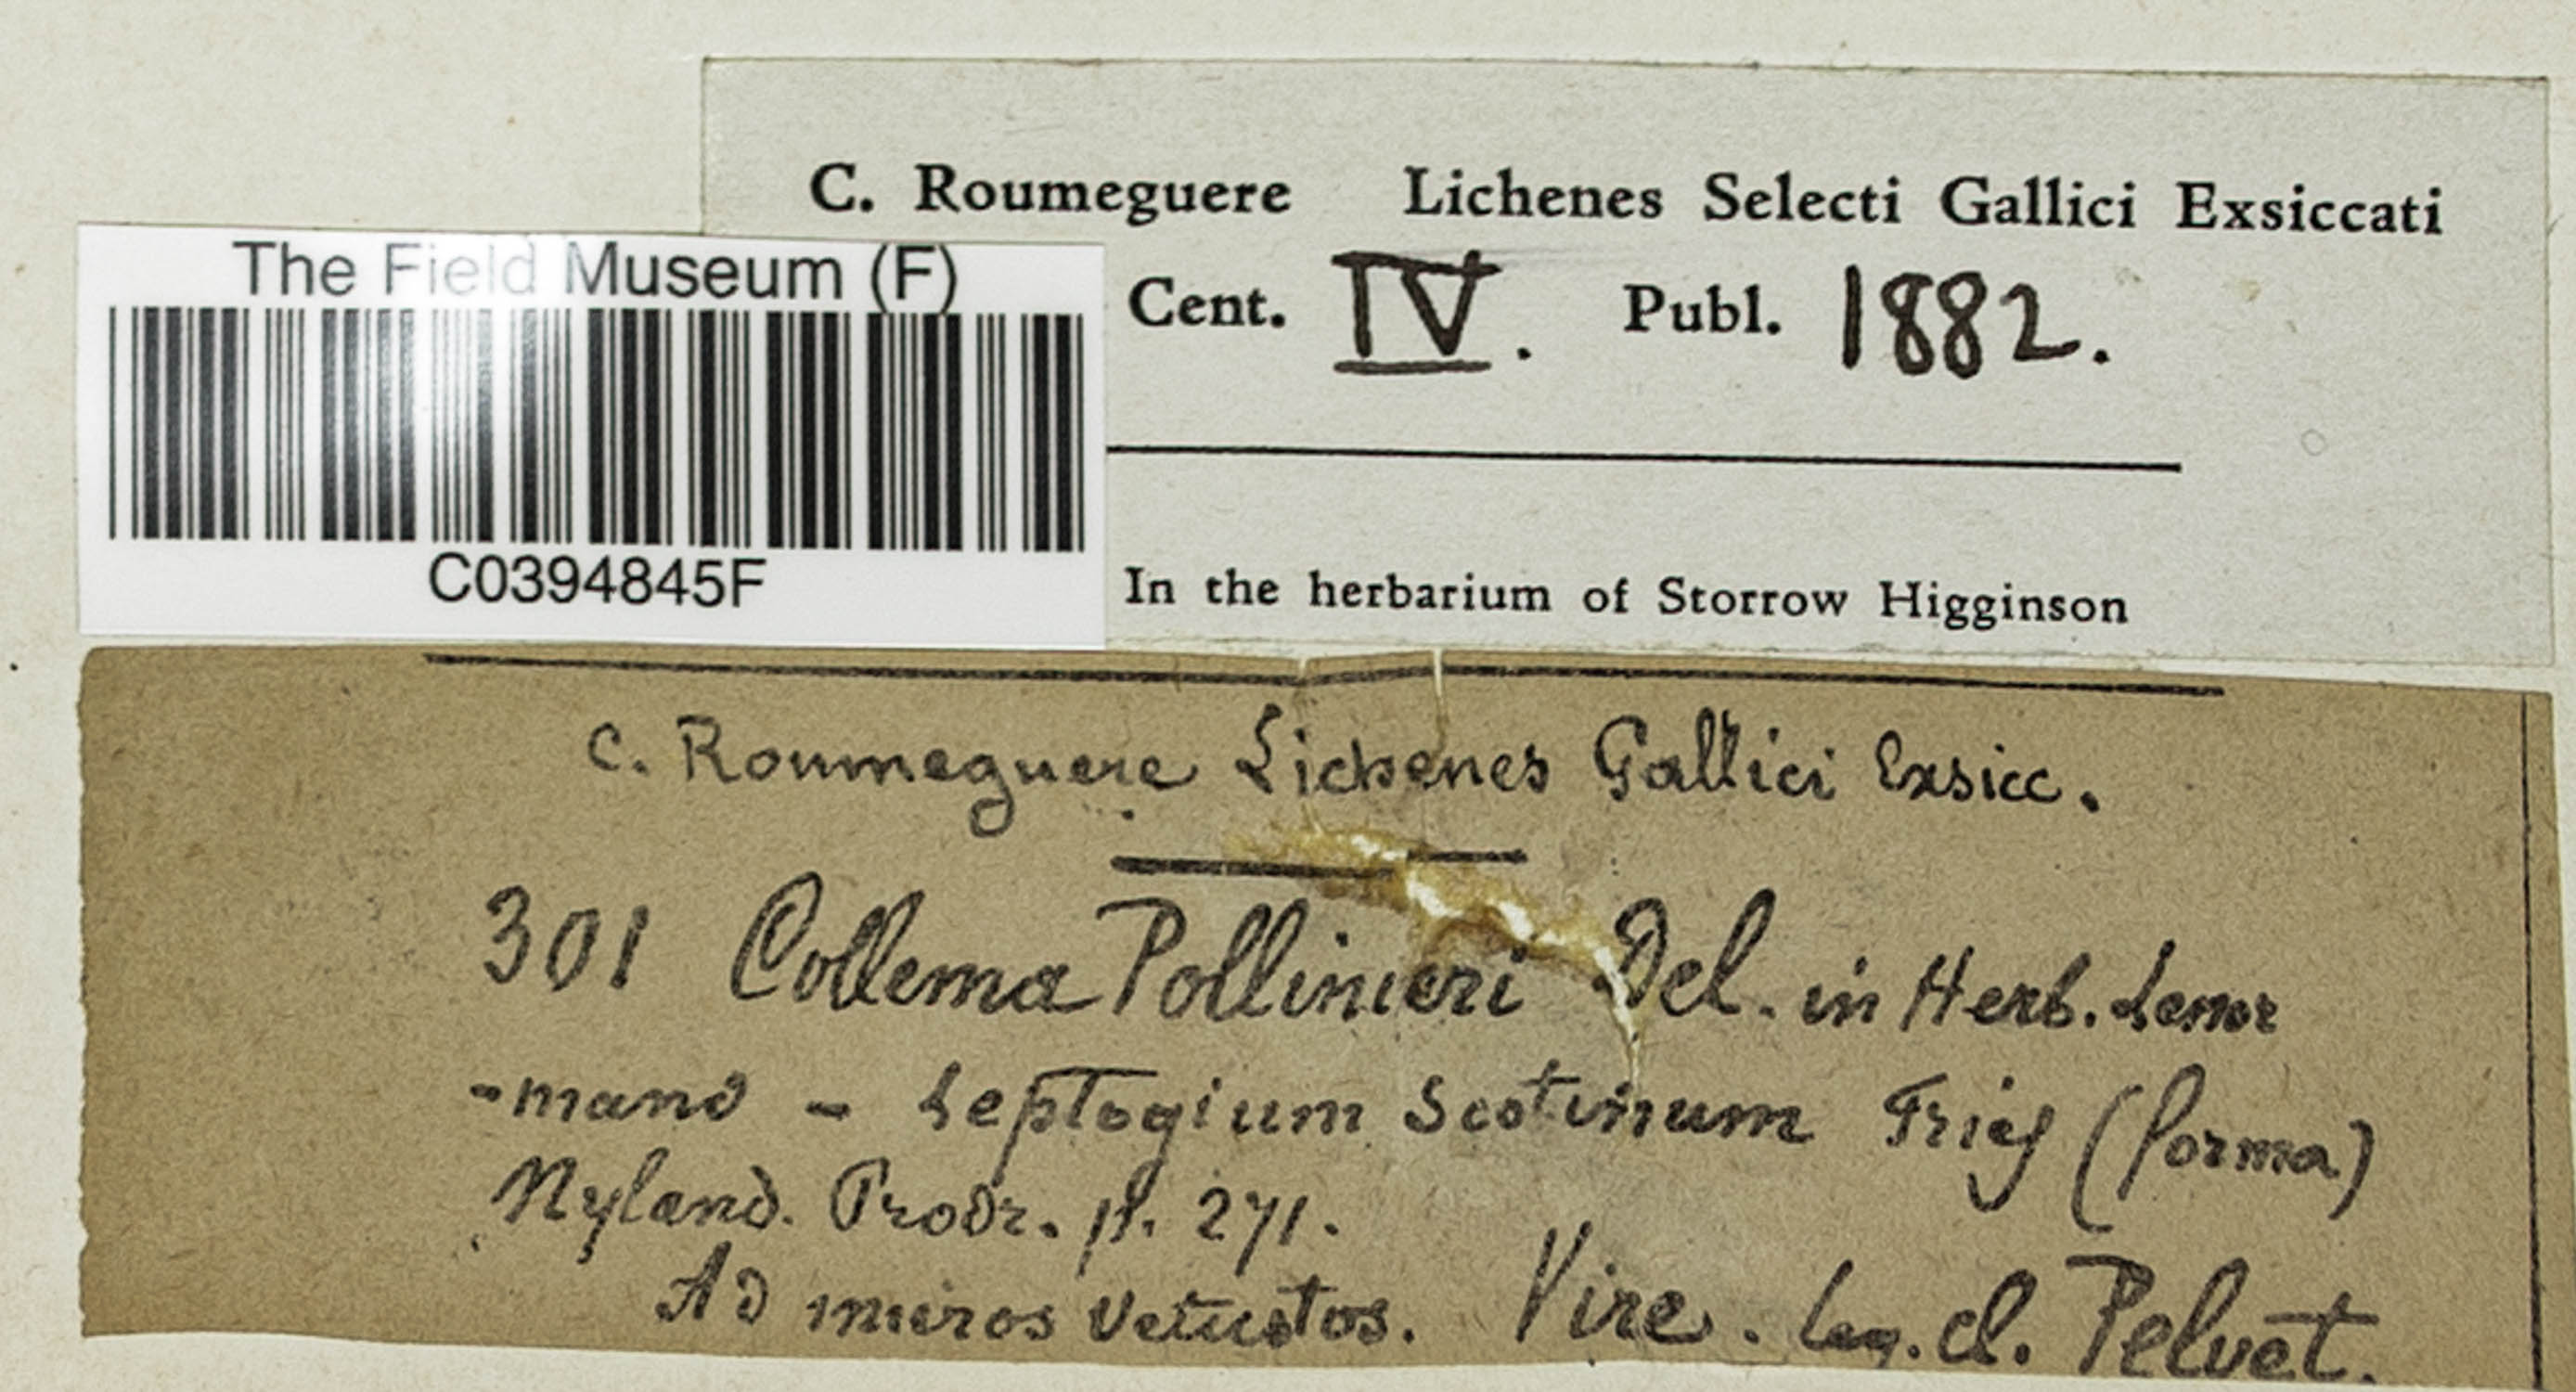 C. Roumeguere Lichenes Selecti Gallici Exsiccati
The Field Museum (F)
Cent. IV. Publ. 1882.
C0394845F
In the herbarium of Storrow Higginson
C. Roumeguere Lichenes Gallici Exsicc.
301 Collema Pollinieri Del. in Herb. Lenor
-mand - Leptogium Scotinum Fries (forma)
Nyland. Prodr. p. 271.
Ad muros vetustos. Vire. Leg. cl. Pelvet.